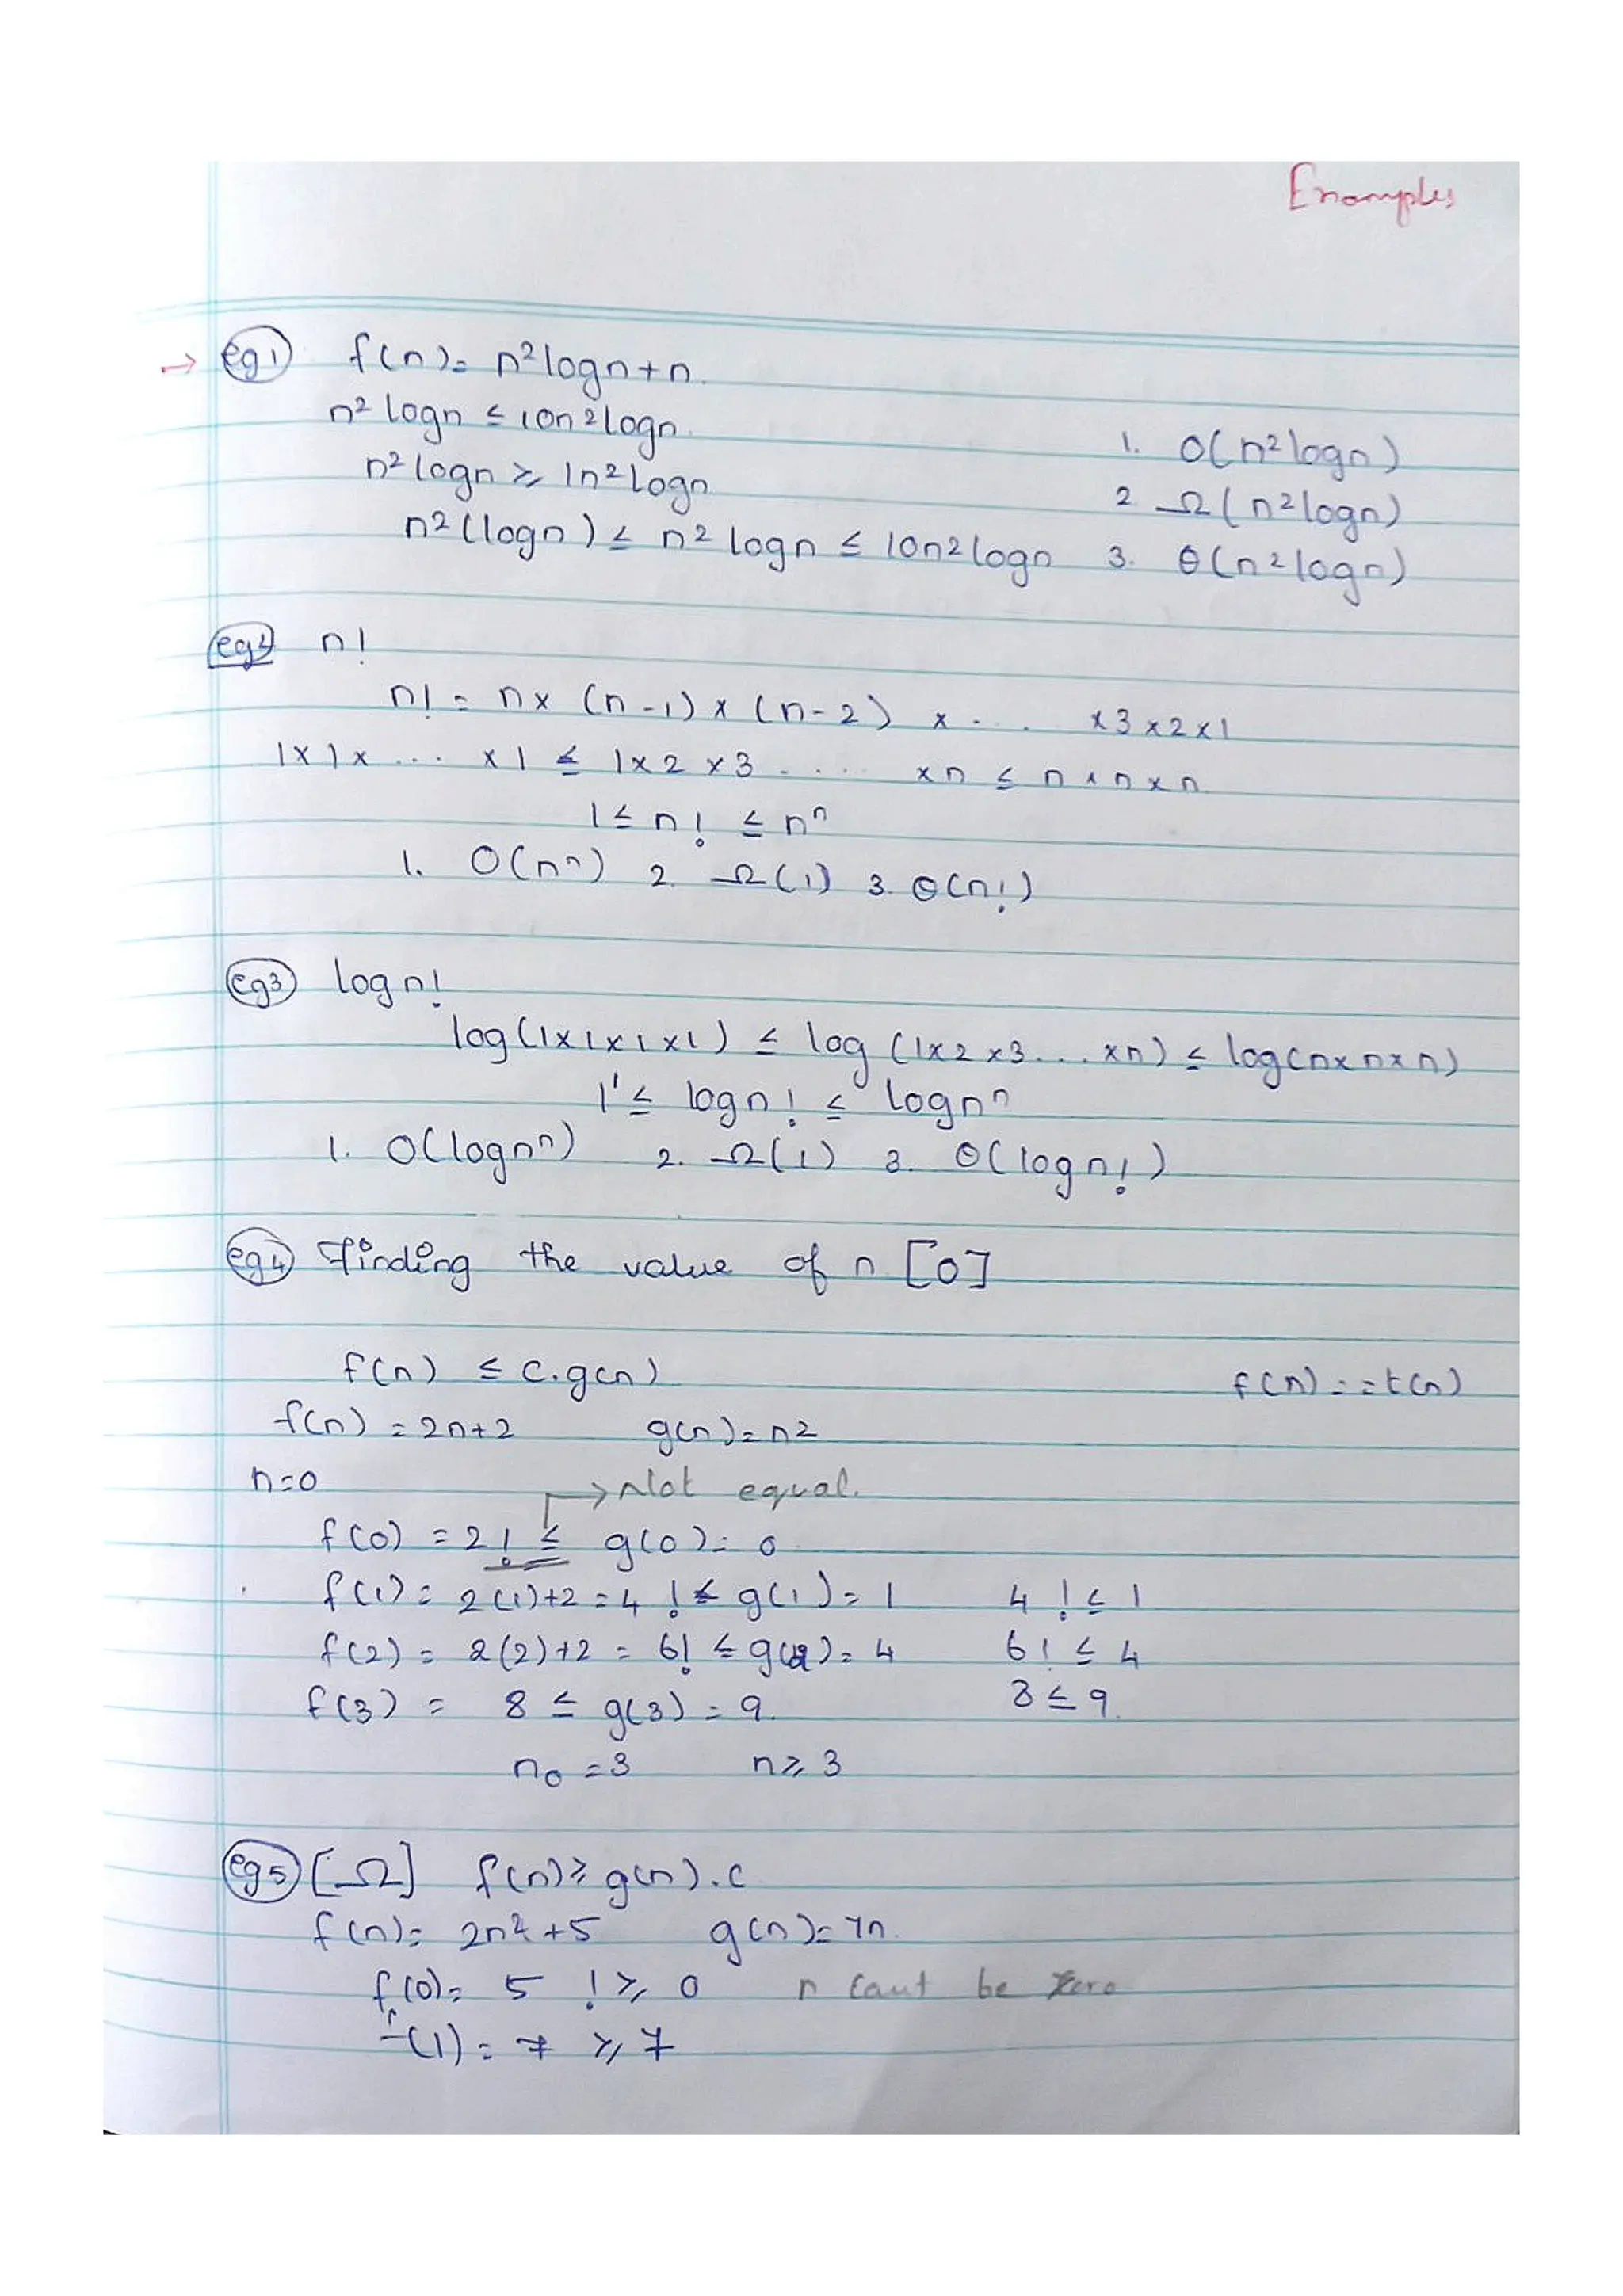 Examples
eg1 f(n)= n²logn+n
n² logn ≤ 10n²logn
n² logn ≥ 1n²logn
n²(logn) ≤ n² logn ≤ 10n²logn
1. O(n²logn)
2 Ω(n²logn)
3. θ(n²logn)
eg2 n!
n! = n× (n-1)× (n-2) × .... ×3×2×1
1×1× ... ×1 ≤ 1×2×3 ..... ×n ≤ n×n×n
1≤ n! ≤ nⁿ
1. O(nⁿ) 2. Ω(1) 3. θ(n!)
eg3 logn!
log(1×1×1×1) ≤ log (1×2×3... ×n) ≤ log(n×n×n)
1 ≤ logn! ≤ lognⁿ
1. O(lognⁿ) 2. Ω(1) 3. θ(logn!)
eg4 Finding the value of n [O]
f(n) ≤ c.g(n) f(n)==t(n)
f(n) = 2n+2 g(n)=n2
n=0 → Not equal.
f(0) = 2 !≤ g(0)= 0
f(1)= 2(1)+2 =4 !≤ g(1)= 1 4 !≤ 1
f(2) = 2(2)+2 = 6! ≤ g(2)= 4 6! ≤ 4
f(3) = 8 ≤ g(3) = 9. 8≤9.
n₀ =3 n≥3
eg5 [Ω] f(n)≥ g(n).c
f(n)= 2n²+5 g(n)=7n.
f(0)= 5 !≥ 0 n cant be zero
f(1)= 7 ≥ 7